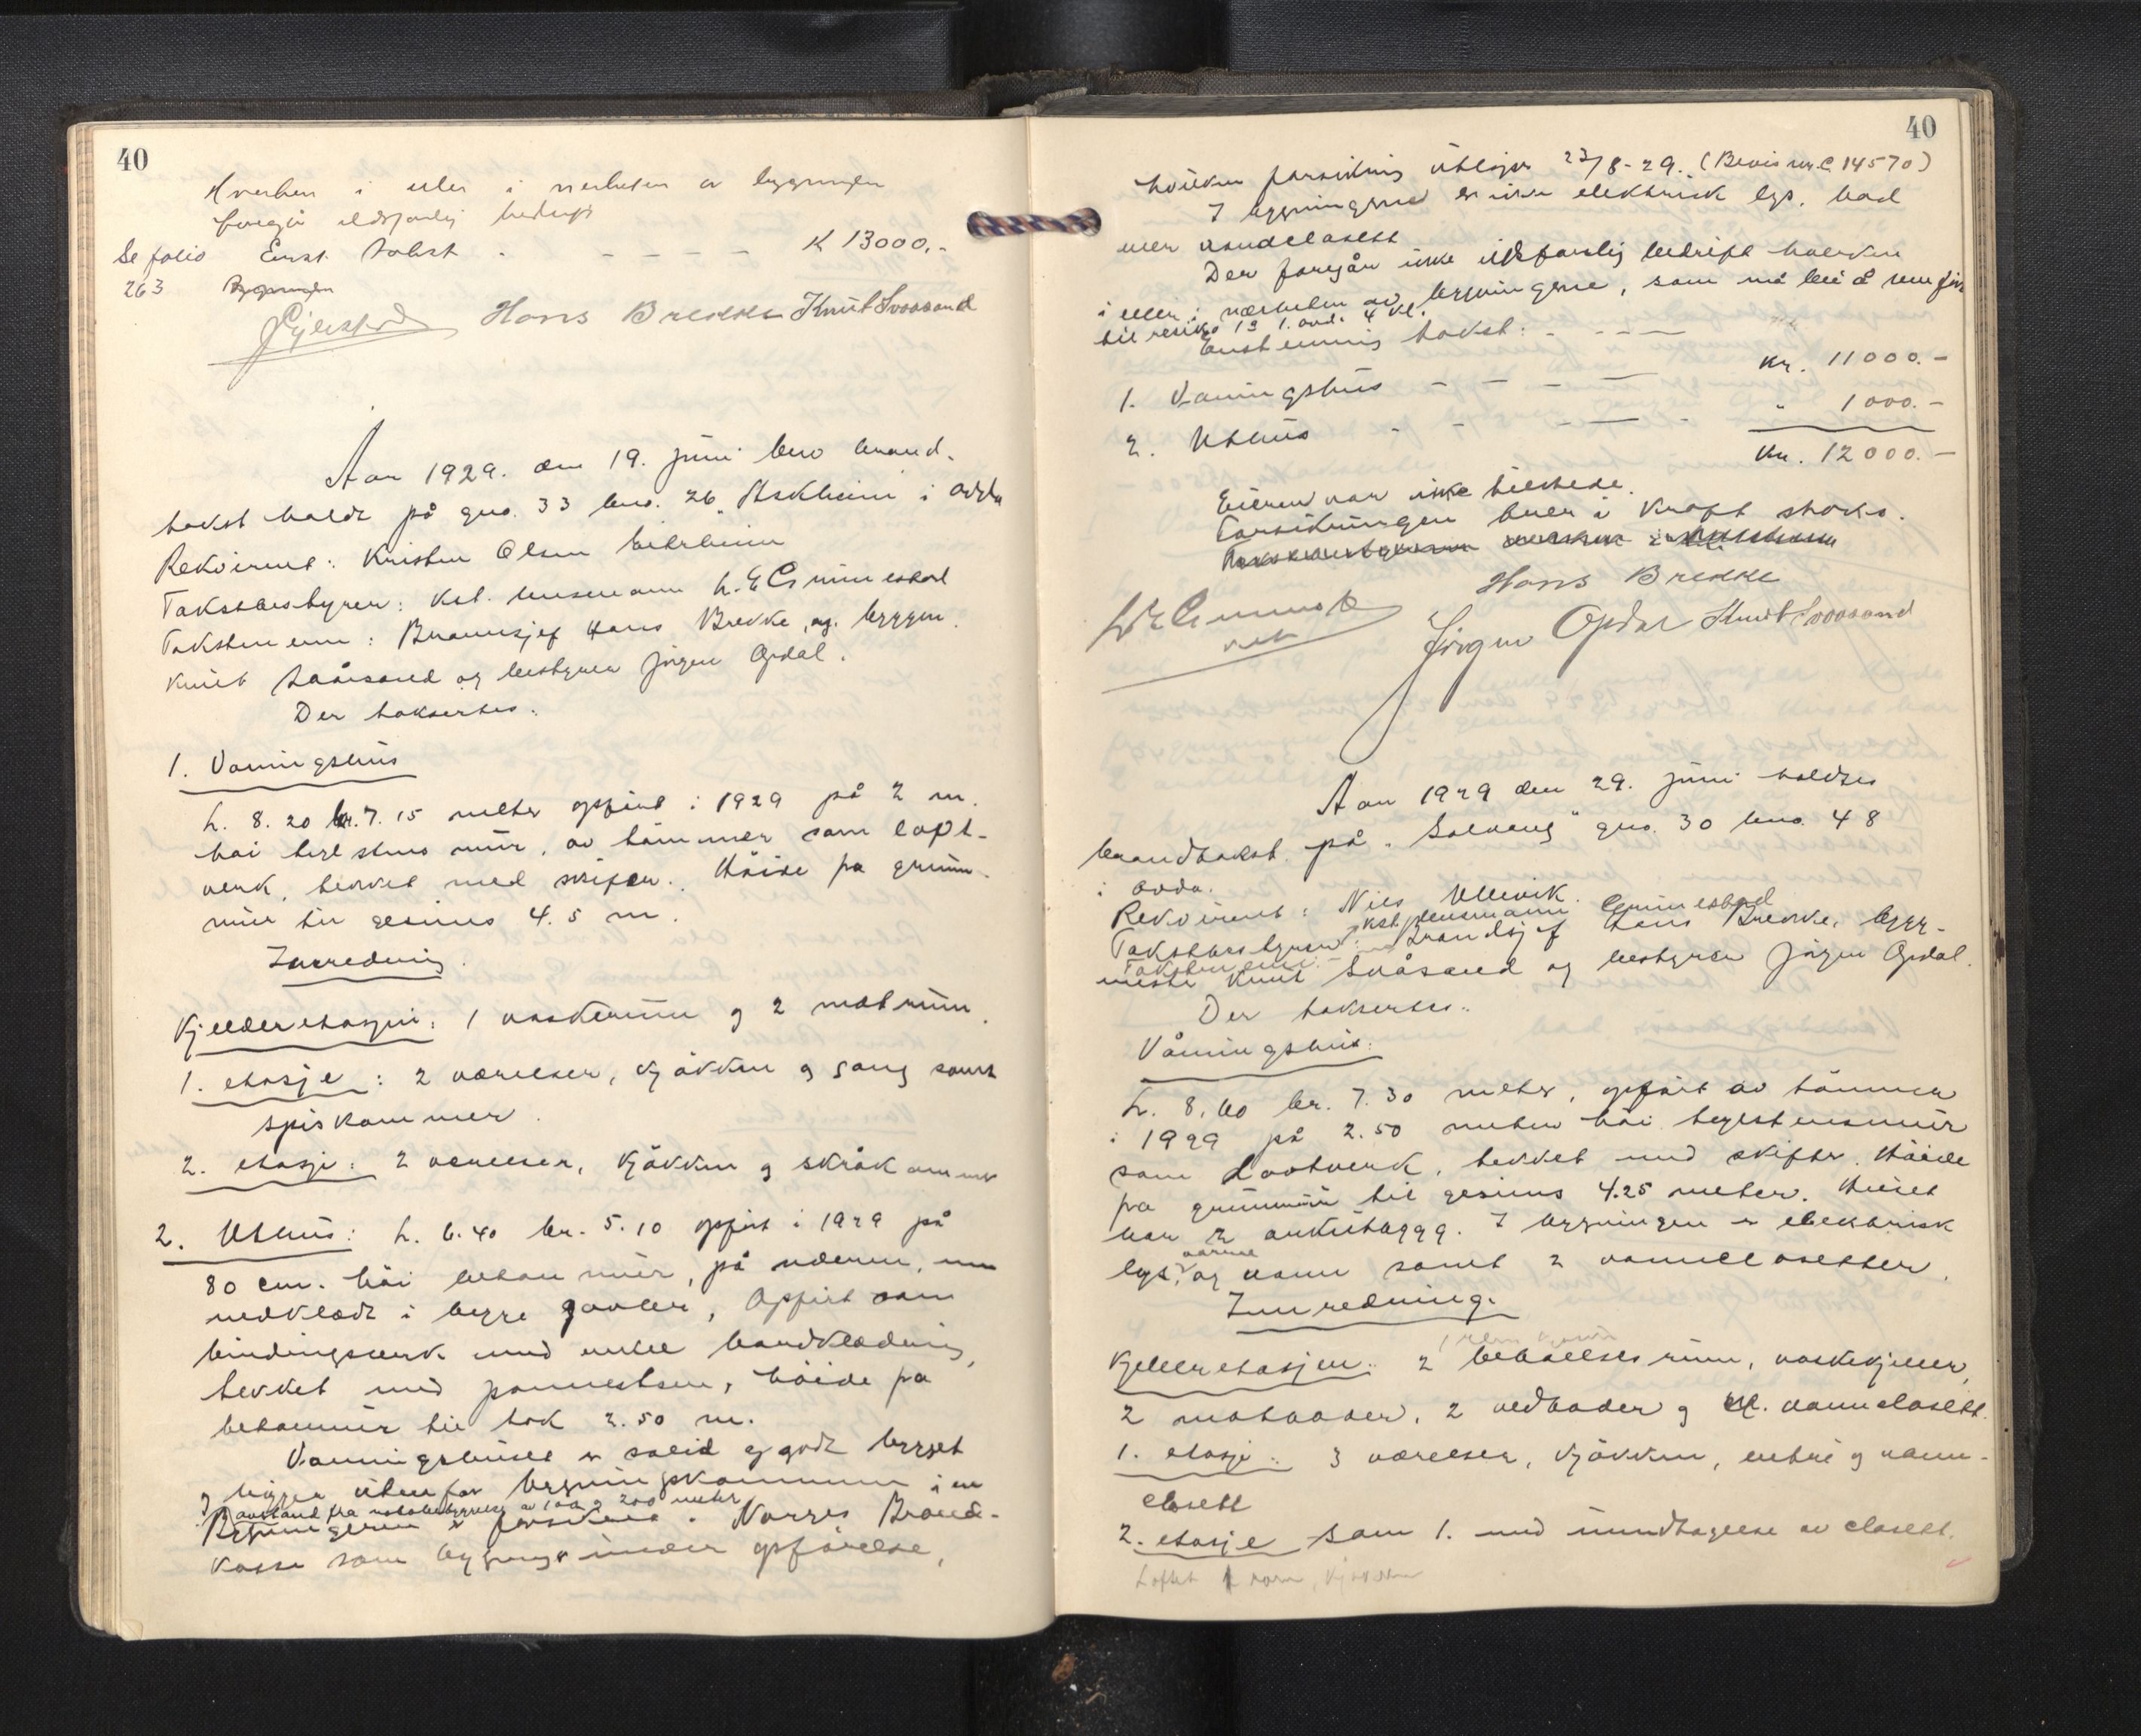 40
Hverken i eller i nerheten av bygningen
foregår eldsfarlig bedrift
Se folio Enst. takst - - - - - K 13000,-
263 Bygningen
Hans Brekke Knut Svaasand
Aar 1929. den 19. juni blev brand-
takst holdt på gno. 33 bno. 26 "Askheim" i Odda
Rekvirent: Kristen Olsen Eitrheim
Takstbestyrer: Kst. lensmann L. E. Grimestad
Takstmenn: Brannsjef Hans Brekke, og byggm.
Knut Svåsand og bestyrer Jörgen Opdal.
Der taksertes:
1. Vaaningshus
L. 8.20 br. 7.15 meter opfört i 1929 på 2 m.
höi teglstens mur, av tömmer som loft-
verk, tekket med skifer. Höide fra grunn-
mur til gesims 4.5 m.
Innredning.
Kjelleretasjen: 1 vaskerum og 2 matrum.
1. etasje: 2 værelser, kjökken og gang samt
spiskammer.
2. etasje: 2 værelser, kjökken og skråkammer
2. Uthus: L. 6.40 br. 5.10 opfört i 1929 på
80 cm. höi betonmur, på nederen, men
nedklædt i begge gavler, Opfört som
bindingsverk med enkel bordklædning,
tekket med pannesten, höide fra
betonmur til tak 2.50 m.
Vaaningshuset er solid og godt bygget
og ligger utenfor bygningskommunen i en
avstand fra nabobebyggelse av 100 a 200 meter
Bygningerne er forsikret i Norges Brand-
kasse som bygning under opförelse,
40
hvilken forsikring utlöper 23/8-29. (Bevis nr. C 14570)
I bygningerne er ikke elektrisk lys, bad
eller vandclosett
Der foregår ikke ildsfarlig bedrift hverken
i eller i nærheten av bygningerne, som må bli å henföre
til resiko 13 1. avd. 4 kl.
Enstemmig takst: - - - -
1. Vaaningshus - - - - Kr. 11000.-
2. Uthus - - - - - " 1000.-
Kr. 12000.-
Eieren var ikke tilstede.
Forsikringen trer i kraft straks.
Hans Brekke
L E Grimestad Jörgen Opdal Knut Svaasand
Aar 1929 den 29. juni holdtes
brandtakst på "Solvang" gno. 30 bno. 48
i Odda.
Rekvirent: Nils Ullevik.
Takstbestyrer: kst. lensmann Grimestad
Takstmenn: Brandsjef Hans Brekke, bygg-
mester Knut Svåsand og bestyrer Jörgen Opdal.
Der taksertes:
Våningshus:
L. 8.60 br. 7.30 meter, opfört av tömmer
i 1929 på 2.50 meter höi teglstensmur
som Loftverk, tekket med skifter. Höide
fra grunnmur til gesims 4.25 meter. Huset
har 2 arkutbygg. I bygningen er elektrisk
lys, varme og vann samt 2 vannclosetter.
Innredning.
Kjelleretasjen: 2 beboelsesrum, vaskekjeller,
2 matboder, 2 vedboder og et. vannclosett.
1. etasje: 3 værelser, kjökken, entre og vann-
closett
2. etasje som 1. med inndtagelse av closett.
Loftet 1 rom, kjökken